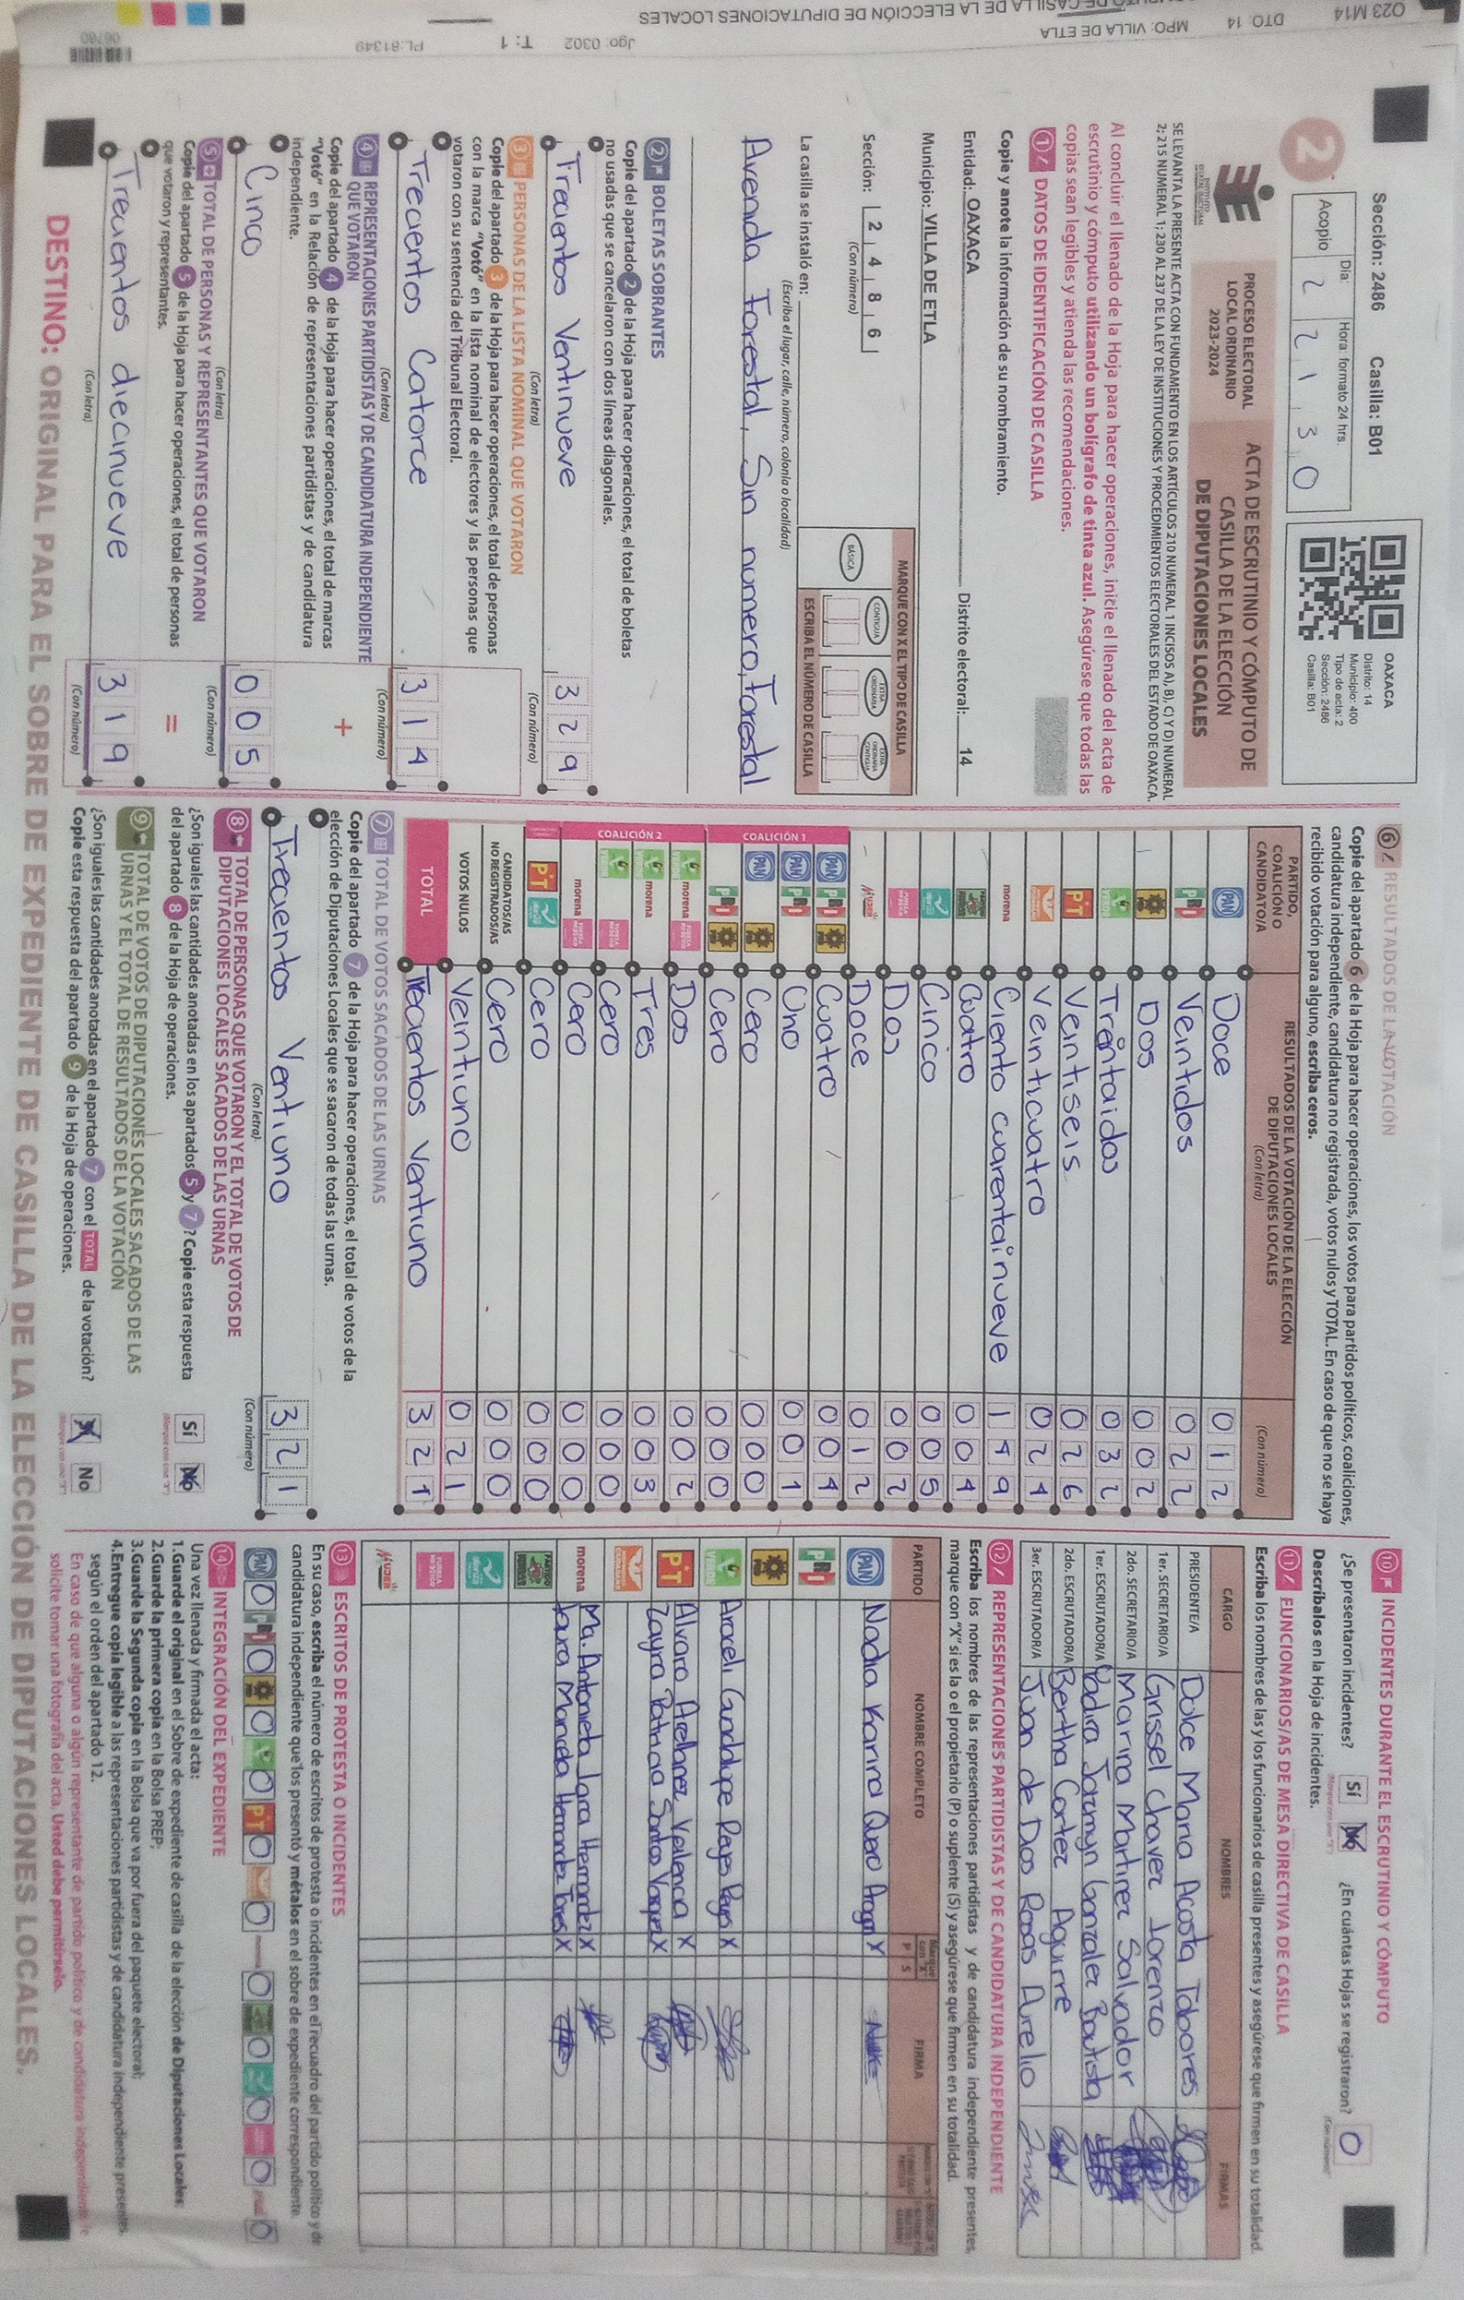 Sección: 2486 Casilla: B01
2
Día: Hora: formato 24 hrs.
Acopio 2 21:30
OAXACA
Distrito: 14
Municipio: 400
Tipo de acta: 2
Sección: 2486
Casilla: B01
PROCESO ELECTORAL
LOCAL ORDINARIO
2023-2024
ACTA DE ESCRUTINIO Y CÓMPUTO DE
CASILLA DE LA ELECCIÓN
DE DIPUTACIONES LOCALES
SE LEVANTA LA PRESENTE ACTA CON FUNDAMENTO EN LOS ARTÍCULOS 210 NUMERAL 1 INCISOS A), B), C) Y D) NUMERAL
2; 215 NUMERAL 1; 230 AL 237 DE LA LEY DE INSTITUCIONES Y PROCEDIMIENTOS ELECTORALES DEL ESTADO DE OAXACA.
Al concluir el llenado de la Hoja para hacer operaciones, inicie el llenado del acta de
escrutinio y cómputo utilizando un bolígrafo de tinta azul. Asegúrese que todas las
copias sean legibles y atienda las recomendaciones.
1 DATOS DE IDENTIFICACIÓN DE CASILLA
Copie y anote la información de su nombramiento.
Entidad: OAXACA Distrito electoral: 14
Municipio: VILLA DE ETLA
Sección: 2 4 8 6
(Con número)
MARQUE CON X EL TIPO DE CASILLA
BÁSICA CONTIGUA EXTRAORDINARIA EXTRAORDINARIA CONTIGUA
ESCRIBA EL NÚMERO DE CASILLA
La casilla se instaló en:
(Escriba el lugar, calle, número, colonia o localidad)
Avenida Forestal, Sin numero, Forestal
2 BOLETAS SOBRANTES
Copie del apartado 2 de la Hoja para hacer operaciones, el total de boletas
no usadas que se cancelaron con dos líneas diagonales.
Trecientos Ventinueve 329
(Con letra) (Con número)
3 PERSONAS DE LA LISTA NOMINAL QUE VOTARON
Copie del apartado 3 de la Hoja para hacer operaciones, el total de personas
con la marca "Votó" en la lista nominal de electores y las personas que
votaron con su sentencia del Tribunal Electoral.
Trecientos Catorce 314
(Con letra) (Con número)
4 REPRESENTACIONES PARTIDISTAS Y DE CANDIDATURA INDEPENDIENTE
QUE VOTARON
Copie del apartado 4 de la Hoja para hacer operaciones, el total de marcas
"Votó" en la Relación de representaciones partidistas y de candidatura
independiente.
+
Cinco 005
(Con letra) (Con número)
5 TOTAL DE PERSONAS Y REPRESENTANTES QUE VOTARON
Copie del apartado 5 de la Hoja para hacer operaciones, el total de personas
que votaron y representantes.
=
Trecientos diecinueve 319
(Con letra) (Con número)
6 RESULTADOS DE LA VOTACIÓN
Copie del apartado 6 de la Hoja para hacer operaciones, los votos para partidos políticos, coaliciones,
candidatura independiente, candidatura no registrada, votos nulos y TOTAL. En caso de que no se haya
recibido votación para alguno, escriba ceros.
PARTIDO, COALICIÓN O CANDIDATO/A
RESULTADOS DE LA VOTACIÓN DE LA ELECCIÓN
DE DIPUTACIONES LOCALES
(Con letra) (Con número)
PAN Doce 012
PRI Veintidos 022
PRD Dos 002
VERDE Treintaidos 032
PT Veintiseis 026
Veinticuatro 024
morena Ciento cuarentainueve 149
Cuatro 004
Cinco 005
Dos 002
MUJER Doce 012
COALICIÓN 1
PAN PRI PRD Cuatro 004
PAN PRI Uno 001
PAN PRD Cero 000
PRI PRD Cero 000
COALICIÓN 2
VERDE morena Dos 002
VERDE morena Tres 003
VERDE Cero 000
morena Cero 000
PT Cero 000
CANDIDATOS/AS
NO REGISTRADOS/AS Cero 000
VOTOS NULOS Veintiuno 021
TOTAL Trecientos Ventiuno 321
7 TOTAL DE VOTOS SACADOS DE LAS URNAS
Copie del apartado 7 de la Hoja para hacer operaciones, el total de votos de la
elección de Diputaciones Locales que se sacaron de todas las urnas.
Trecientos Ventiuno 321
(Con letra) (Con número)
8 TOTAL DE PERSONAS QUE VOTARON Y EL TOTAL DE VOTOS DE
DIPUTACIONES LOCALES SACADOS DE LAS URNAS
¿Son iguales las cantidades anotadas en los apartados 5 y 7? Copie esta respuesta
del apartado 8 de la Hoja de operaciones.
Sí No
9 TOTAL DE VOTOS DE DIPUTACIONES LOCALES SACADOS DE LAS
URNAS Y EL TOTAL DE RESULTADOS DE LA VOTACIÓN
¿Son iguales las cantidades anotadas en el apartado 7 con el TOTAL de la votación?
Copie esta respuesta del apartado 9 de la Hoja de operaciones.
Sí No
10 INCIDENTES DURANTE EL ESCRUTINIO Y CÓMPUTO
¿Se presentaron incidentes? Sí No ¿En cuántas Hojas se registraron? 0
Descríbalos en la Hoja de incidentes.
11 FUNCIONARIOS/AS DE MESA DIRECTIVA DE CASILLA
Escriba los nombres de las y los funcionarios de casilla presentes y asegúrese que firmen en su totalidad.
CARGO NOMBRES FIRMAS
PRESIDENTE/A Dolce Maria Acosta Tabores
1er. SECRETARIO/A Grissel Chavez Lorenzo
2do. SECRETARIO/A Marina Martinez Salvador
1er. ESCRUTADOR/A Yadira Jazmyn Gonzalez Bautista
2do. ESCRUTADOR/A Bertha Cortez Aguirre
3er. ESCRUTADOR/A Juan de Dios Rosas Aurelio
12 REPRESENTACIONES PARTIDISTAS Y DE CANDIDATURA INDEPENDIENTE
Escriba los nombres de las representaciones partidistas y de candidatura independiente presentes,
marque con "X" si es la o el propietario (P) o suplente (S) y asegúrese que firmen en su totalidad.
PARTIDO NOMBRE COMPLETO P S FIRMA
PAN Nadia Karina Quero Aragon X
PRI
PRD
VERDE Araceli Guadalupe Reyes Reyes X
PT Alvaro Arellanez Valencia X
Zayra Patricia Santos Vasquez X
morena Ma. Antonieta Jara Hernandez X
Laura Marcela Hernandez Torres X
MUJER
13 ESCRITOS DE PROTESTA O INCIDENTES
En su caso, escriba el número de escritos de protesta o incidentes en el recuadro del partido político y de
candidatura independiente que los presentó y métalos en el sobre de expediente correspondiente.
PAN 0 PRI 0 PRD 0 VERDE 0 PT 0 0 morena 0 0 0 0 0
14 INTEGRACIÓN DEL EXPEDIENTE
Una vez llenada y firmada el acta:
1.Guarde el original en el Sobre de expediente de casilla de la elección de Diputaciones Locales;
2.Guarde la primera copia en la Bolsa PREP;
3.Guarde la Segunda copia en la Bolsa que va por fuera del paquete electoral;
4.Entregue copia legible a las representaciones partidistas y de candidatura independiente presentes,
según el orden del apartado 12.
En caso de que alguna o algún representante de partido político y de candidatura independiente
solicite tomar una fotografía del acta, Usted debe permitírselo.
DESTINO: ORIGINAL PARA EL SOBRE DE EXPEDIENTE DE CASILLA DE LA ELECCIÓN DE DIPUTACIONES LOCALES.
O23 M14 DTO: 14 MPO: VILLA DE ETLA
CASILLA DE LA ELECCIÓN DE DIPUTACIONES LOCALES
Jgo: 0302 T: 1 PL:81349
06760